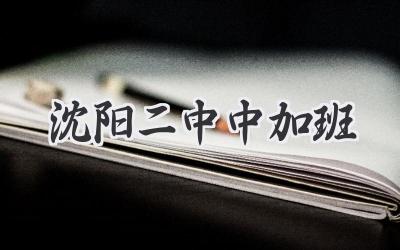 沈阳二中中加班